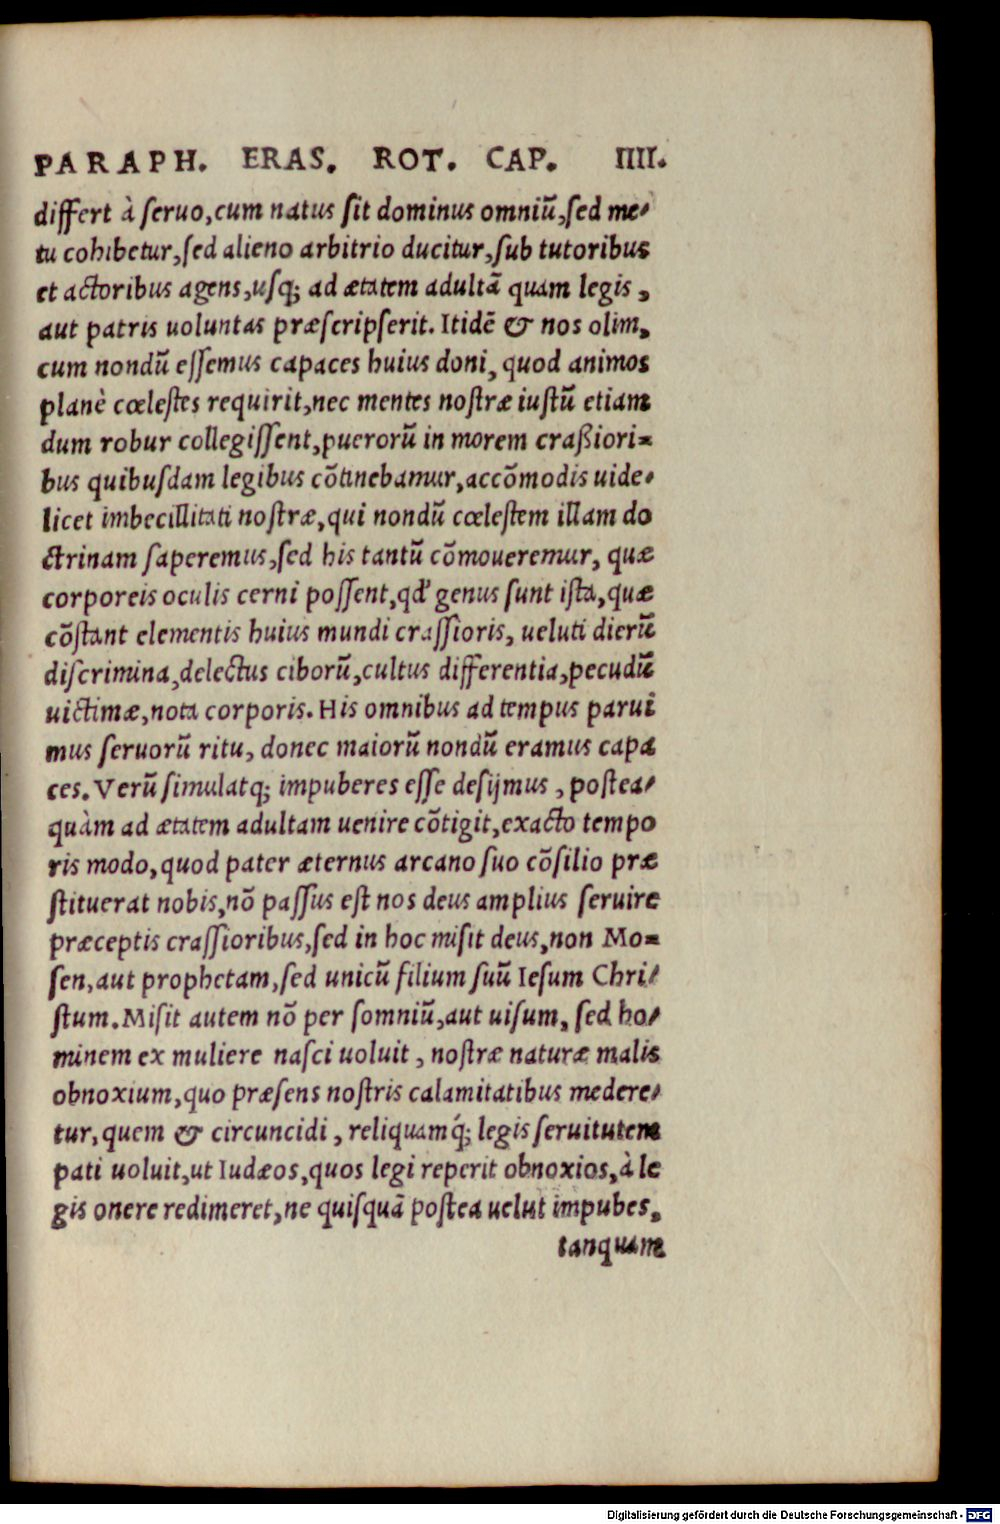 PARAPH. ERAS. ROT. CAP. IIII.
differt à seruo, cum natus sit dominus omniũ, sed me-
tu cohibetur, sed alieno arbitrio ducitur, sub tutoribus
et actoribus agens, usq; ad ætatem adultã quam legis,
aut patris uoluntas præscripserit. Itidẽ & nos olim,
cum nondũ essemus capaces huius doni, quod animos
planè cœlestes requirit, nec mentes nostræ iustũ etiam
dum robur collegissent, puerorũ in morem craßiori=
bus quibusdam legibus cõtinebamur, accõmodis uide-
licet imbecillitati nostræ, qui nondũ cœlestem illam do
ctrinam saperemus, sed his tantũ cõmoueremur, quæ
corporeis oculis cerni possent, qd' genus sunt ista, quæ
cõstant elementis huius mundi crassioris, ueluti dierũ
discrimina, delectus ciborũ, cultus differentia, pecudũ
uictimæ, nota corporis. His omnibus ad tempus parui
mus seruorũ ritu, donec maiorũ nondũ eramus capa
ces. Verũ simulatq; impuberes esse desijmus, postea-
quàm ad ætatem adultam uenire cõtigit, exacto tempo
ris modo, quod pater æternus arcano suo cõsilio præ
stituerat nobis, nõ passus est nos deus amplius seruire
præceptis crassioribus, sed in hoc misit deus, non Mo=
sen, aut prophetam, sed unicũ filium suũ Iesum Chri-
stum. Misit autem nõ per somniũ, aut uisum, sed ho-
minem ex muliere nasci uoluit, nostræ naturæ malis
obnoxium, quo præsens nostris calamitatibus medere-
tur, quem & circuncidi, reliquamq́; legis seruitutem
pati uoluit, ut Iudæos, quos legi reperit obnoxios, à le
gis onere redimeret, ne quisquã postea uelut impubes,
tanquam
Digitalisierung gefördert durch die Deutsche Forschungsgemeinschaft - DFG